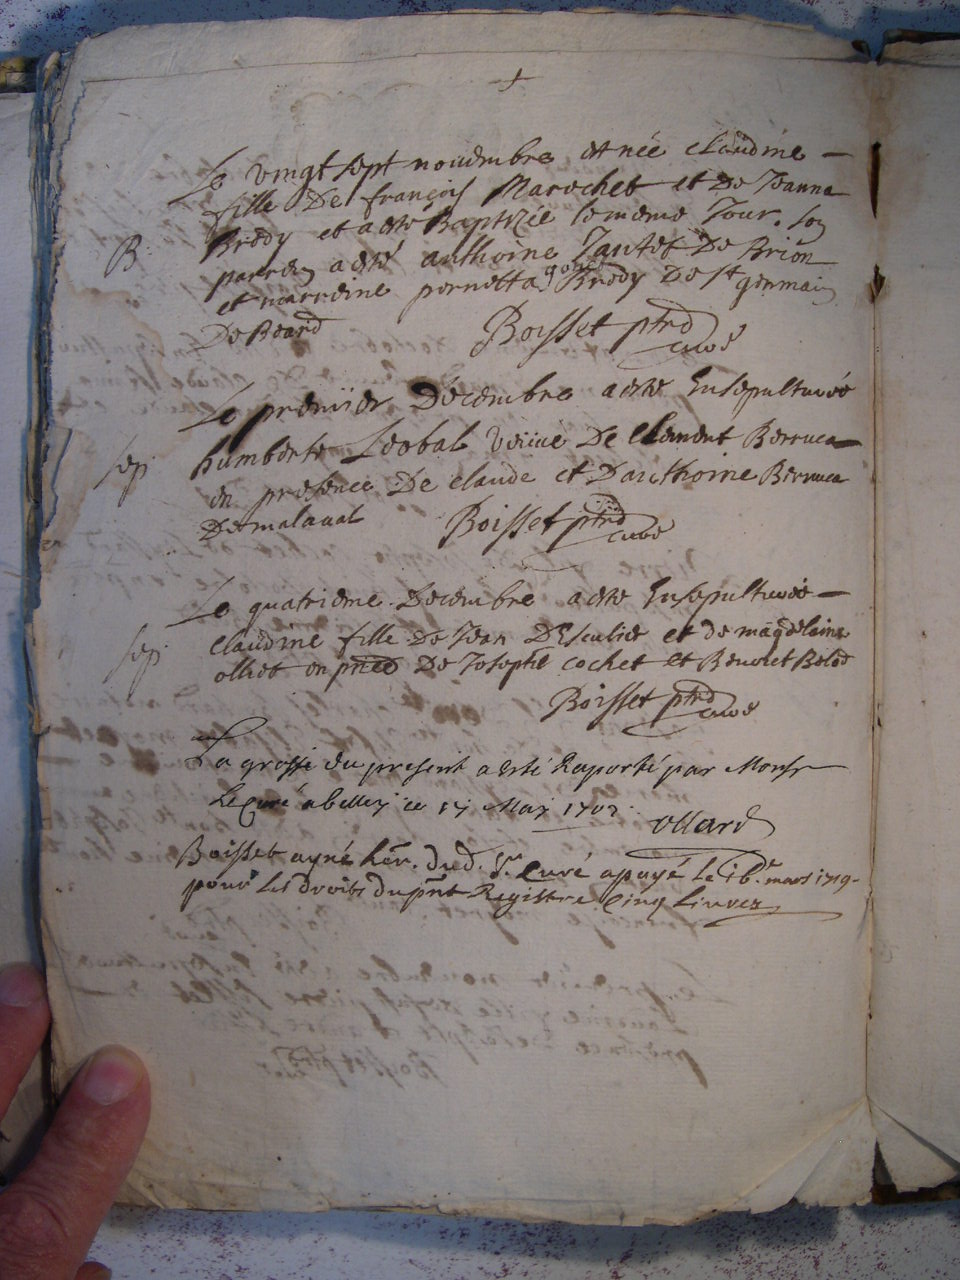 Le vingt sept nouembre est née claudine
fille De françois Marechet et De Jeanne
B. Brody et aesté Baptizée le meme Jour. son
parrein a esté anthoine Tautet De Brion
et marreine pernetta Brody De St germain
De Beard Boisset ptre curé
Le premiier Décembre a esté Ensepulturée
sep. humberte Lerbal veüue De Clement Berruca
en presence De claude et D'anthoine Berruca
De malaual Boisset ptre curé
Le quatrieme Decembre a esté Ensepulturée
sep. claudine fille De Jean et de magdelaine
olliet en pnce De Joseph cochet et Benoict
Boisset ptre curé
La grosse du present a esté Raporté par Monsr
le Curé a belley ce 17 May 1707.
ollard
Boisset ayné her. dud. Sr. curé a payé le mars 1719
pour les droits du pnt Registre Cinq Liures